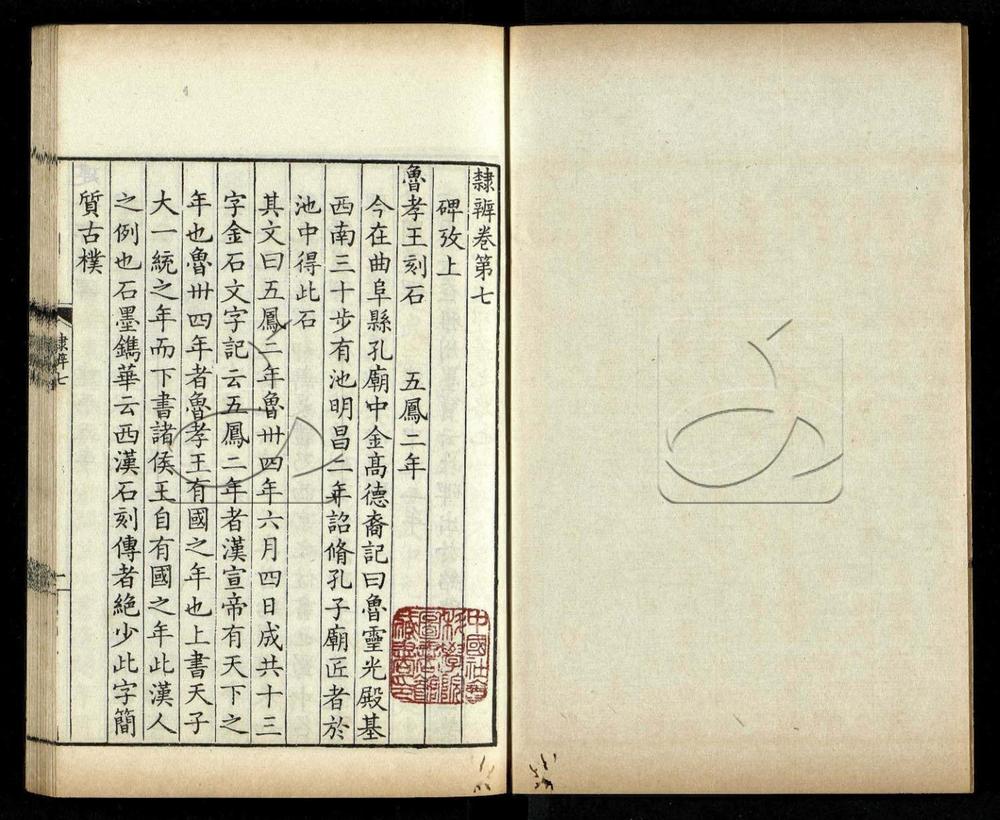 隸辨卷第七
碑攷上
魯孝王刻石　　五鳳二年
今在曲阜縣孔廟中金高德裔記曰魯靈光殿基
西南三十步有池明昌二年詔脩孔子廟匠者於
池中得此石
其文曰五鳳二年魯卅四年六月四日成共十三
字金石文字記云五鳳二年者漢宣帝有天下之
年也魯卅四年者魯孝王有國之年也上書天子
大一統之年而下書諸侯王自有國之年此漢人
之例也石墨鐫華云西漢石刻傳者絕少此字簡
質古樸
隸辨七
一
中國社會
科學院
圖書館
藏書印